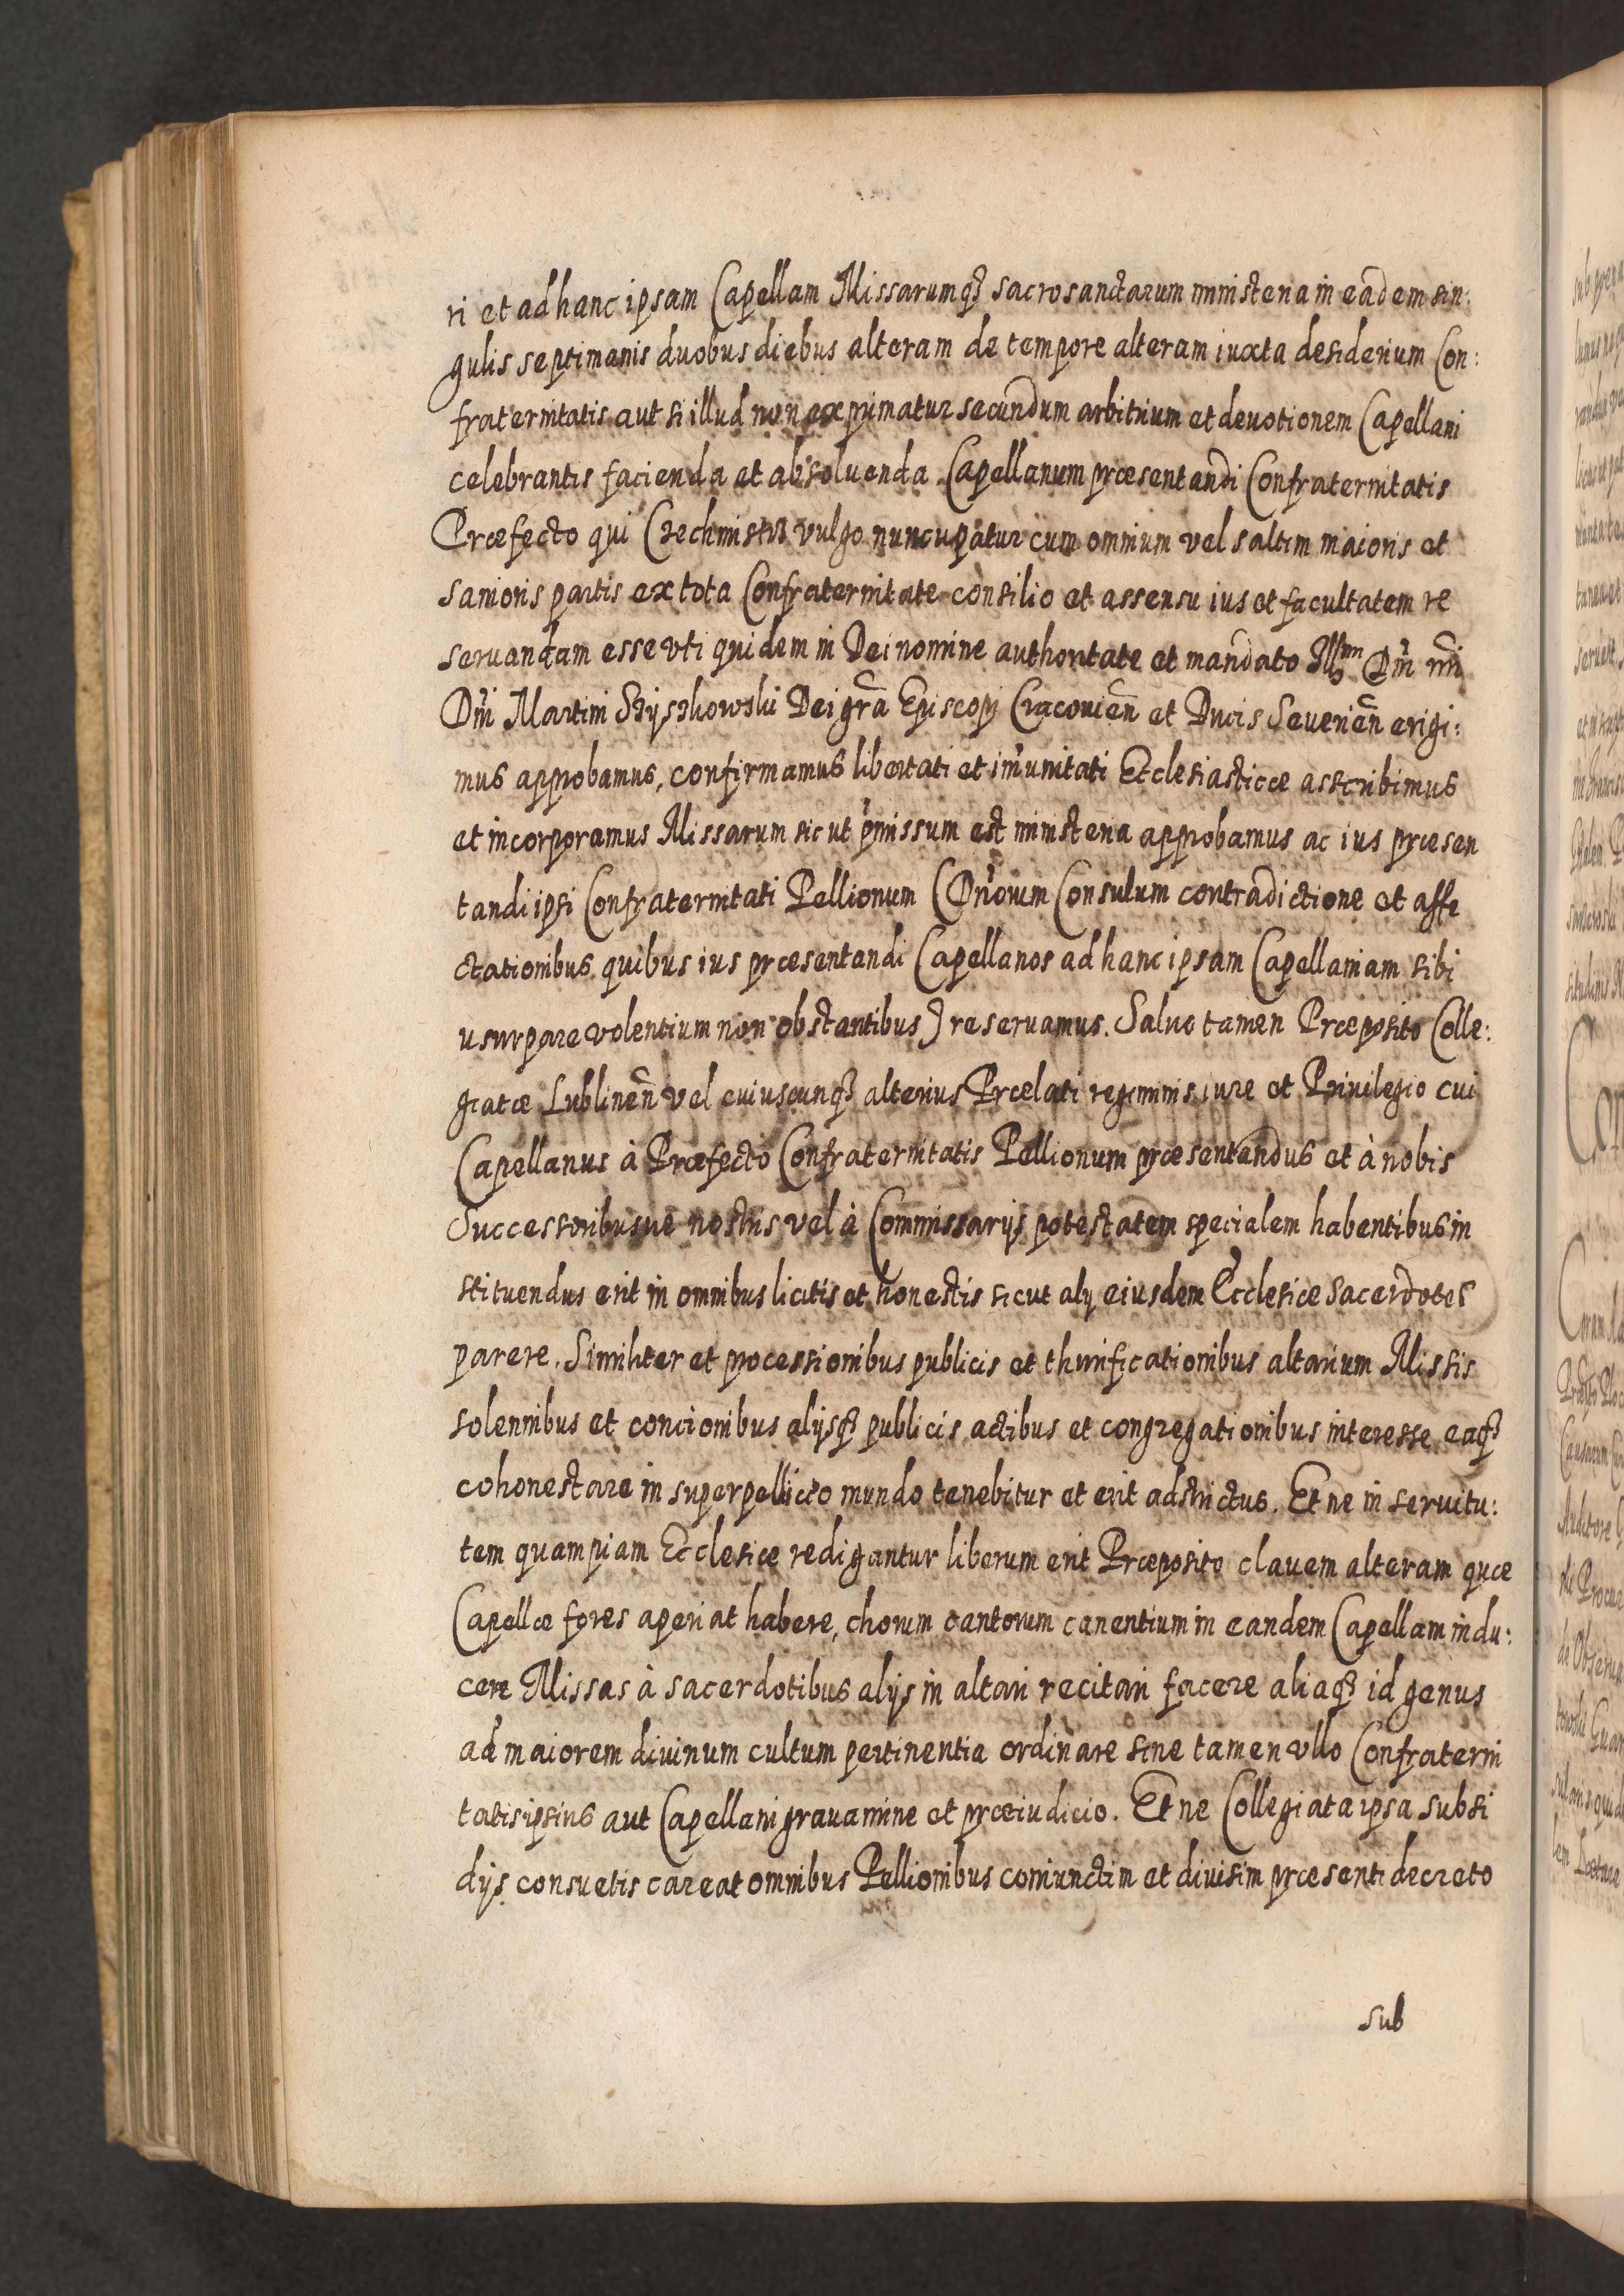 ri et ad hanc ipsam Capellam Missarumq3 sacrosanctarum ministeria in eadem sin:
gulis septimanis duobus diebus alteram de tempore alteram iuxta desiderium Con:
fraternitatis aut si illud non exprimatur secundum arbitrium et deuotionem Capellani
celebrantis facienda et absoluenda. Capellanum præsentandi Confraternitatis
Præfecto qui Czechmistrz vulgo nuncupatur cum omnium vel saltim maioris et
sanioris partis ex tota Confraternitate consilio et assensu ius et facultatem re
seruandam esse vti quidem in Dei nomine authoritate et mandato Illmi Dni nri
Dni Martini Szyszkowski Dei gra Episcopi Cracouien et Ducis Seuerien erigi:
mus approbamus, confirmamus libertati et imunitati Ecclesiasticæ asscribimus
et incorporamus Missarum sicut pmissum est ministeria approbamus ac ius præsen
tandi ipsi Confraternitati Pellionum (Dnorum Consulum contradictione et affe
ctationibus quibus ius præsentandi Capellanos ad hanc ipsam Capellaniam sibi
usurpare volentium non obstantibus) reseruamus. Saluo tamen Præposito Colle:
giatæ Lublinen vel cuiuscunq3 alterius Prælati regiminis iure et Priuilegio cui
Capellanus à Præfecto Confraternitatis Pellionum præsentandus et à nobis
Successoribusue nostris vel à Commissarijs potestatem specialem habentibus in
stituendus erit in omnibus licitis et honestis sicut alij eiusdem Ecclesiæ Sacerdotes
parere. Similiter et processionibus publicis et thurificationibus altarium Missis
solennibus et concionibus alijsq3 publicis actibus et congregationibus interesse eaq3
cohonestare in superpelliceo mundo tenebitur et erit adstrictus. Et ne in seruitu:
tem quampiam Ecclesiæ redigantur liberum erit Præposito clauem alteram quæ
Capellæ fores aperiat habere, chorum cantorum canentium in eandem Capellam indu:
cere Missas à sacerdotibus alijs in altari recitari facere aliaq3 id genus
ad maiorem diuinum cultum pertinentia ordinare sine tamen vllo Confraterni
tatis ipsius aut Capellani grauamine et præiudicio. Et ne Collegiata ipsa subsi
dijs consuetis careat omnibus Pellionibus coniunctim et diuisim præsenti decreto
sub